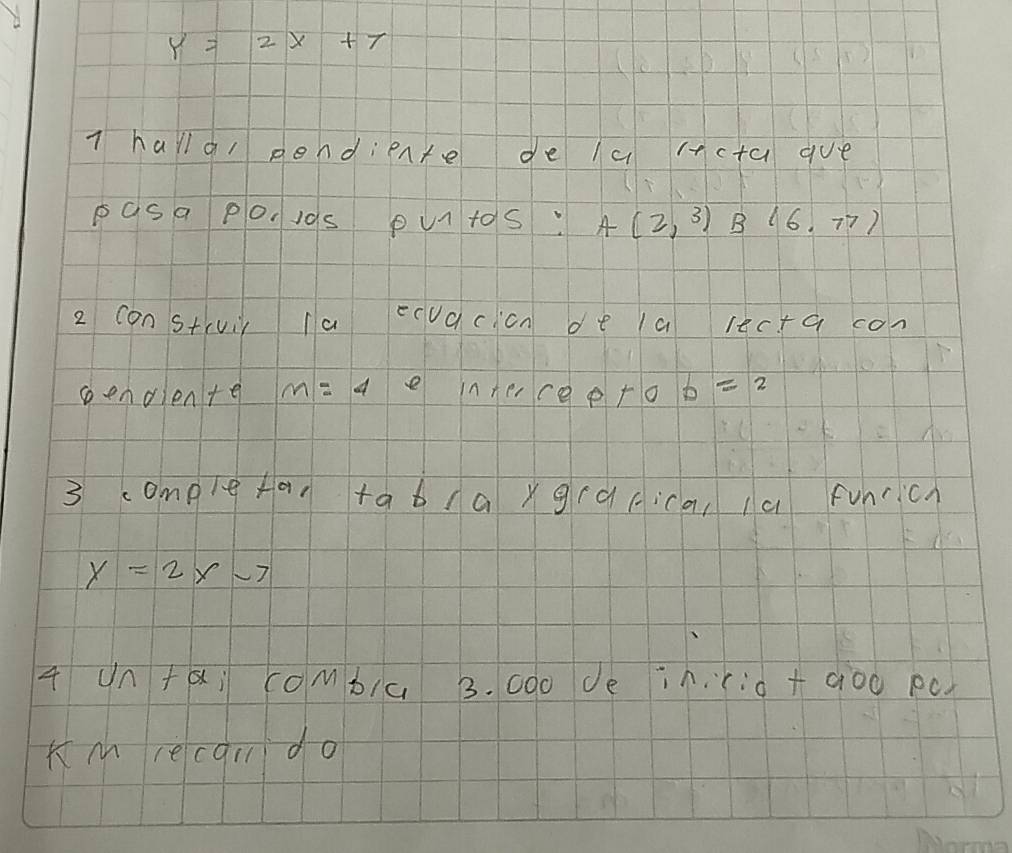 Y = 2x + 7
1 hallar pendiente de la recta que
pasa por los puntos : A (2, 3) B (6, 11)
2 construir la ecuacion de la recta con
pendiente m = 4 e intercepto b = 2
3 completar tabla y graficar la funcion
Y = 2x - 7
4 Un taxi combra 3.000 de inicio + 900 por
KM recorrido
Norma